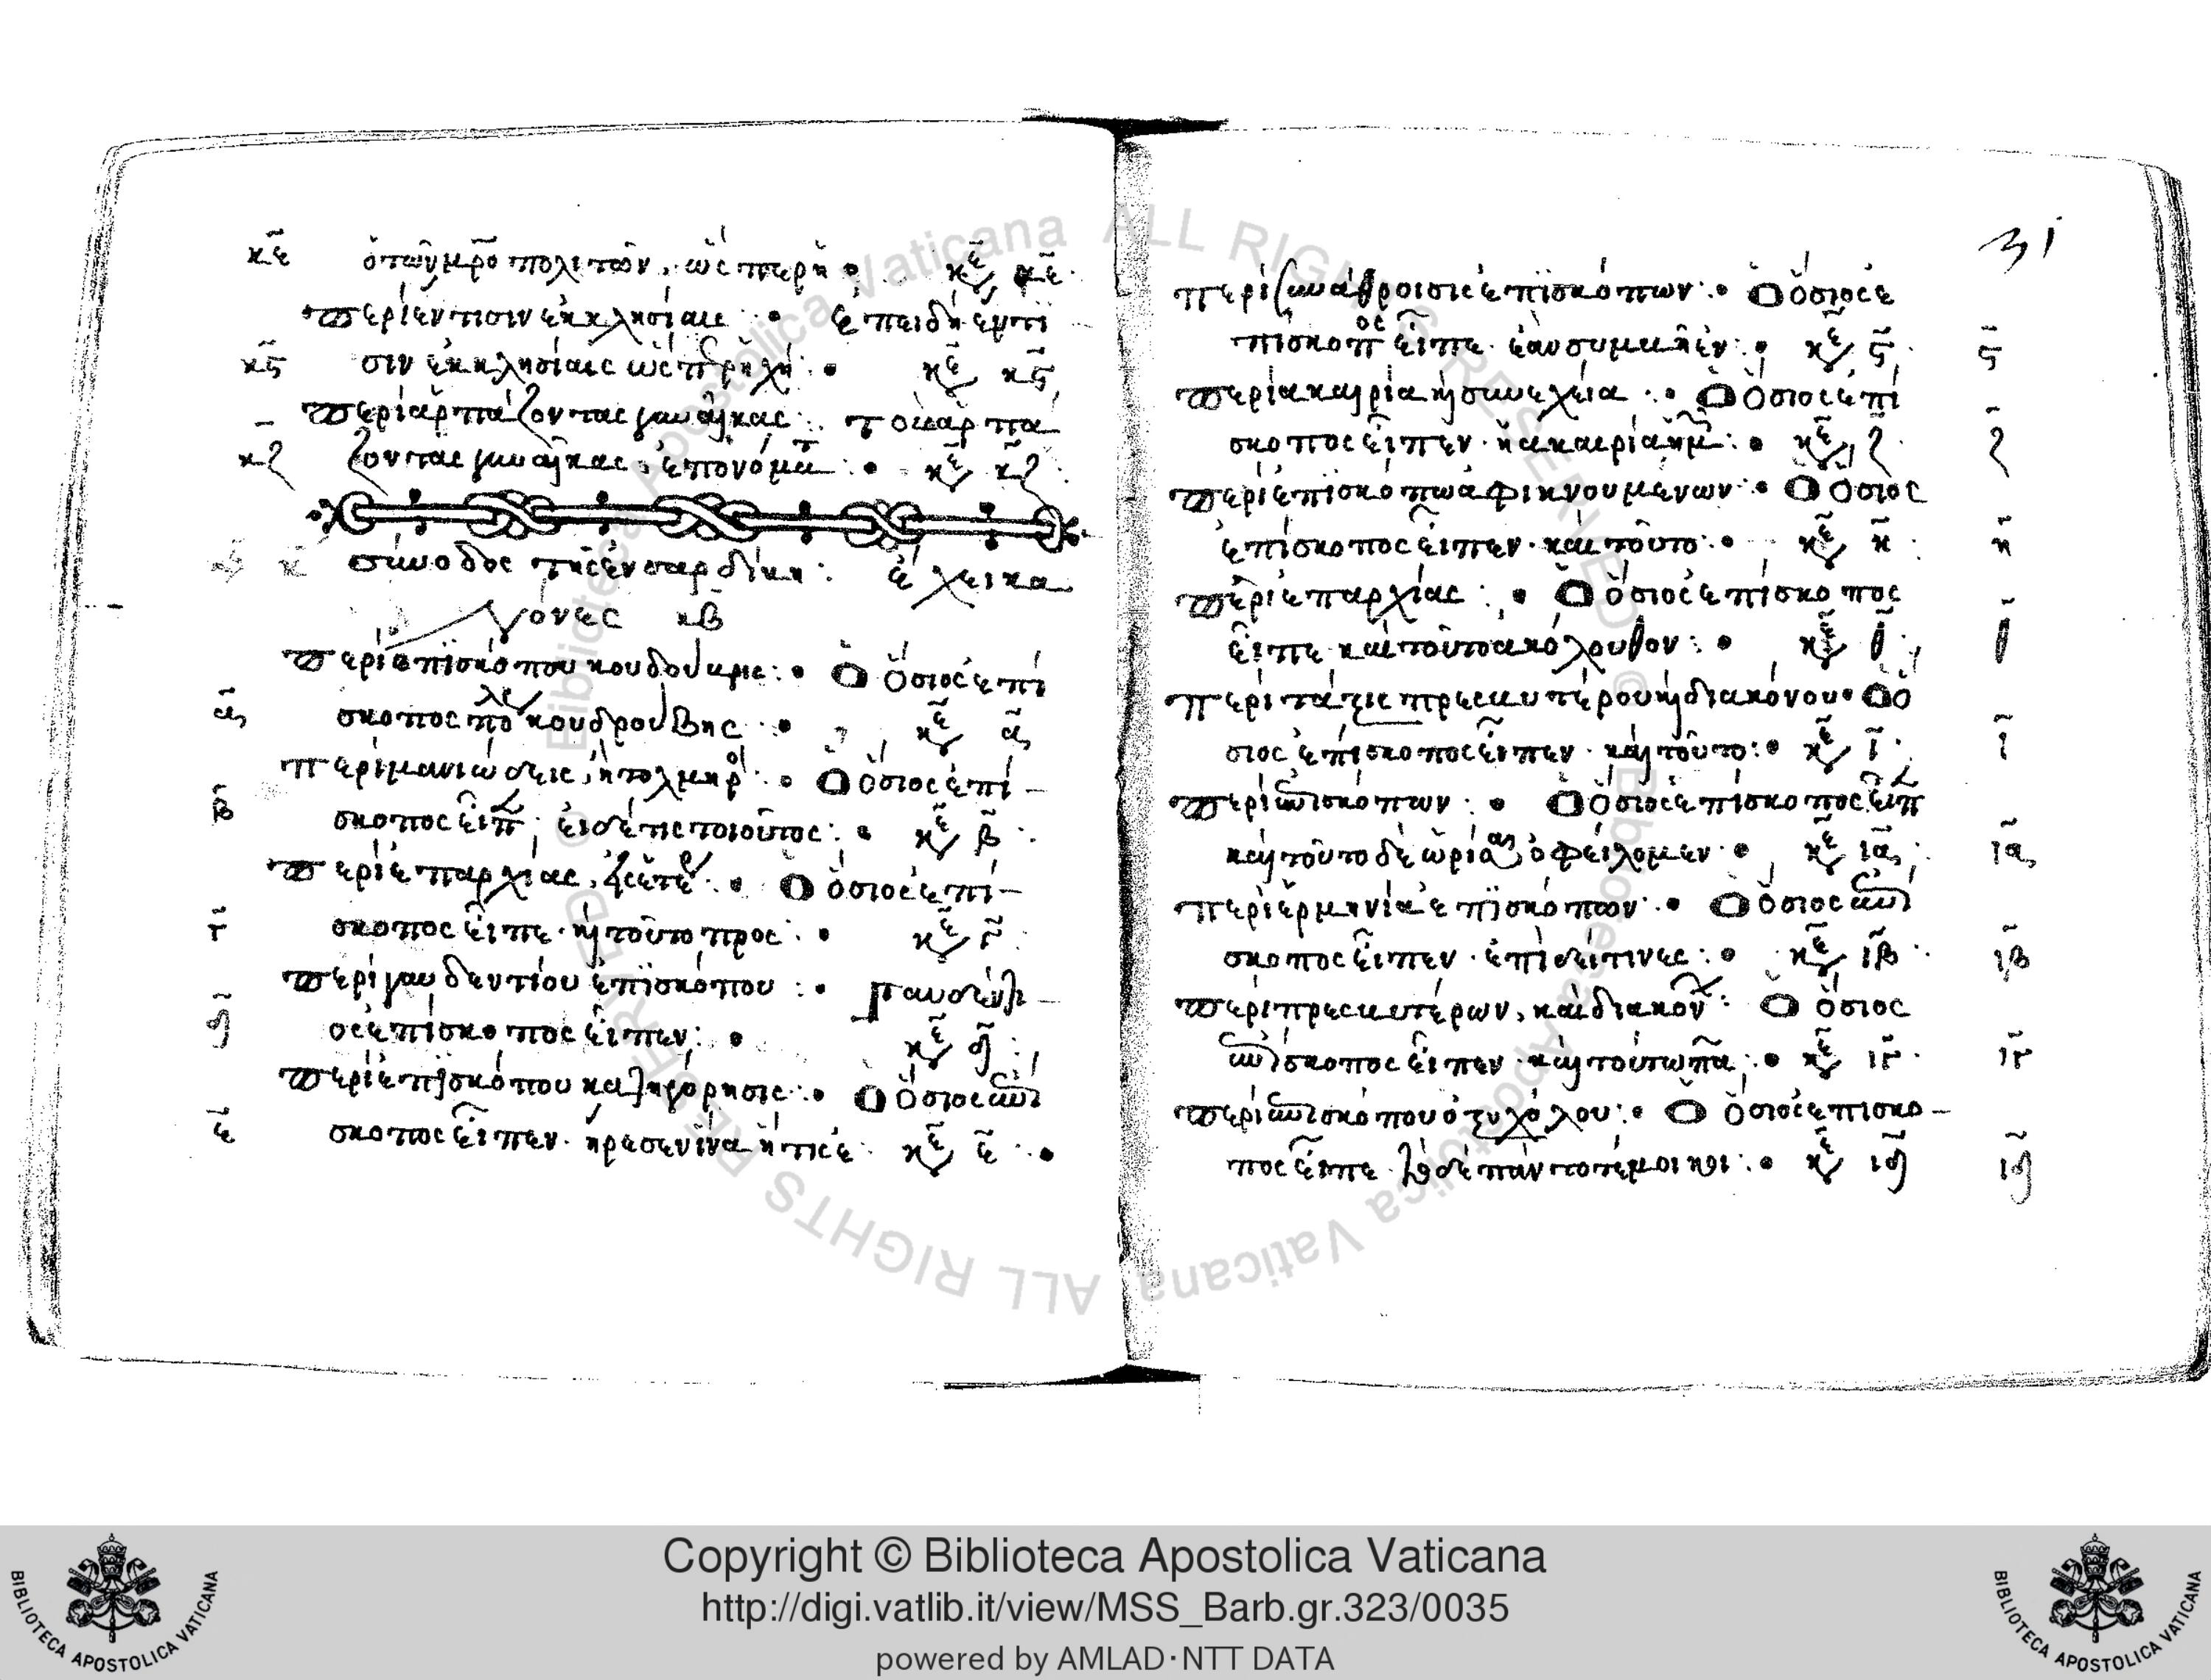 κε ὁ τῶν μρο πολιτῶν, ὡς περὴ κε κε
περὶ ἐν τισιν ἐκκλησίαις : • ἐπειδὴ ἐν τι
κς σιν ἐκκλησίαις ὡς κε κς
περὶ ἁρπάζοντας γυναῖκας : τοὺς ἁρπά
κζ ζοντας γυναῖκας ἐπονόματ : • κε κζ
σύνοδος τῆς ἐν σαρδίκη : ἔχει κα
νόνες κβ
περὶ ἐπισκόπου : • Ὁ ὅσιος ἐπί
α σκοπος πολ κουδρούβης : • κε α
περὶ ἢ τολμηρο : • Ὁ ὅσιος ἐπί
β σκοπος εἶπ, εἰ δέ τις τοιοῦτος : • κε β
περὶ ἐπαρχίας, : • Ὁ ὅσιος ἐπί
γ σκοπος εἶπε · καὶ τοῦτο προς : • κε γ
περὶ γαυδεντίου ἐπισκόπου : •
δ ος ἐπίσκοπος εἶπεν : • κε δ
περὶ ἐπισκόπου κατηγόρησις : • Ὁ ὅσιος ἐπί
ε σκοπος εἶπεν · ἤρεσεν ἵνα ἤ τις ἐ κε ε
31
περὶ συνάθροισις ἐπισκόπων : • Ὁ ὅσιος ἐ
πίσκοπος εἶπε · ἐὰν συμβῆ ἐν : • κε ς ς
περὶ ἀκαιρία καὶ συνεχεία : • Ὁ ὅσιος ἐπί
σκοπος εἶπεν · ἡ ἀκαιρία ἡμ : • κε ζ ζ
περὶ ἐπισκόπω ἀφικνουμένων : • Ὁ ὅσιος
ἐπίσκοπος εἶπεν · καὶ τοῦτο : • κε η η
περὶ ἐπαρχίας : • Ὁ ὅσιος ἐπίσκοπος
εἶπε καὶ τοῦτο ἀκόλουθον : • κε θ θ
περὶ τάξις πρεσβυτέρου καὶ διακόνου • Ὁ ὅ
σιος ἐπίσκοπος εἶπεν · καὶ τοῦτο : • κε ι ι
περὶ ἐπισκόπων : • Ὁ ὅσιος ἐπίσκοπος εἶπ
καὶ τοῦτο δὲ ὁρίσαι ὀφείλομεν : • κε ια ια
περὶ ἑρμηνία ἐπισκόπων : • Ὁ ὅσιος ἐπί
σκοπος εἶπεν · ἐπὶ δεί τινες : • κε ιβ ιβ
περὶ πρεσβυτέρων, καὶ διακον : Ὁ ὅσιος
ἐπίσκοπος εἶπεν · καὶ τούτω πα : • κε ιγ ιγ
περὶ ἐπισκόπου ὀξυχόλου : • Ὁ ὅσιος ἐπίσκο
πος εἶπε · πάντοτέ μοι : • κε ιδ ιδ
Copyright © Biblioteca Apostolica Vaticana
http://digi.vatlib.it/view/MSS_Barb.gr.323/0035
powered by AMLAD·NTT DATA
BIBLIOTECA APOSTOLICA VATICANA
BIBLIOTECA APOSTOLICA VATICANA